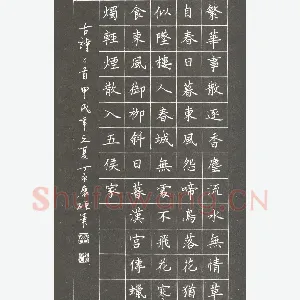 繁華事散逐香塵流水無情草
自春日暮東風怨啼鳥落花猶
似墜樓人春城無處不飛花寒
食東風御柳斜日暮漢宮傳蠟
燭輕煙散入五侯家
古詩二首甲戌年之夏丁